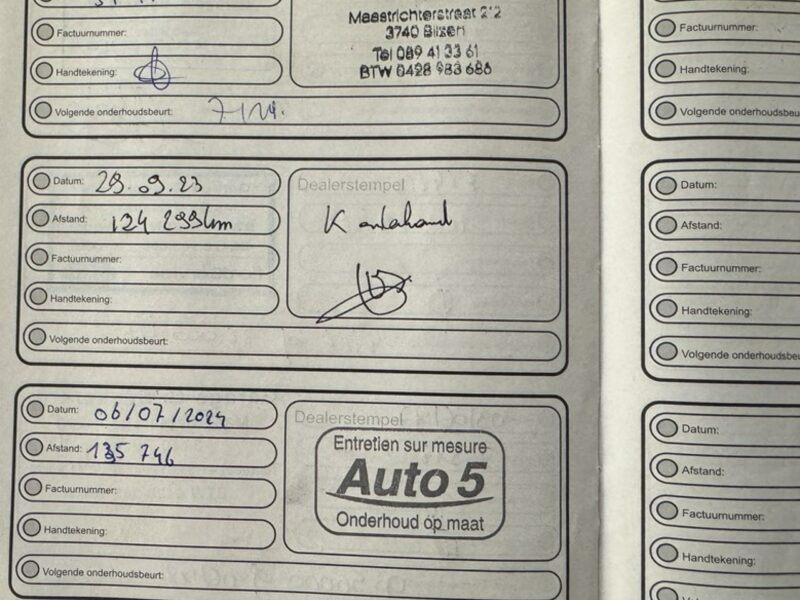 Maastrichterstraat 212
Factuurnummer:
3740 Bilzen
Tel 089 41 33 61
Handtekening:
BTW 0428 983 686
Volgende onderhoudsbeurt:
Datum: 29.09.23
Dealerstempel
Afstand: 124 299km
Factuurnummer:
Handtekening:
Volgende onderhoudsbeurt:
Datum: 06/07/2024
Dealerstempel
Afstand: 135 746
Entretien sur mesure
Auto 5
Onderhoud op maat
Factuurnummer:
Handtekening:
Volgende onderhoudsbeurt:
Factuurnummer:
Handtekening:
Volgende onderhoudsbeu
Datum:
Afstand:
Factuurnummer:
Handtekening:
Volgende onderhoudsbeu
Datum:
Afstand:
Factuurnummer:
Handtekening: